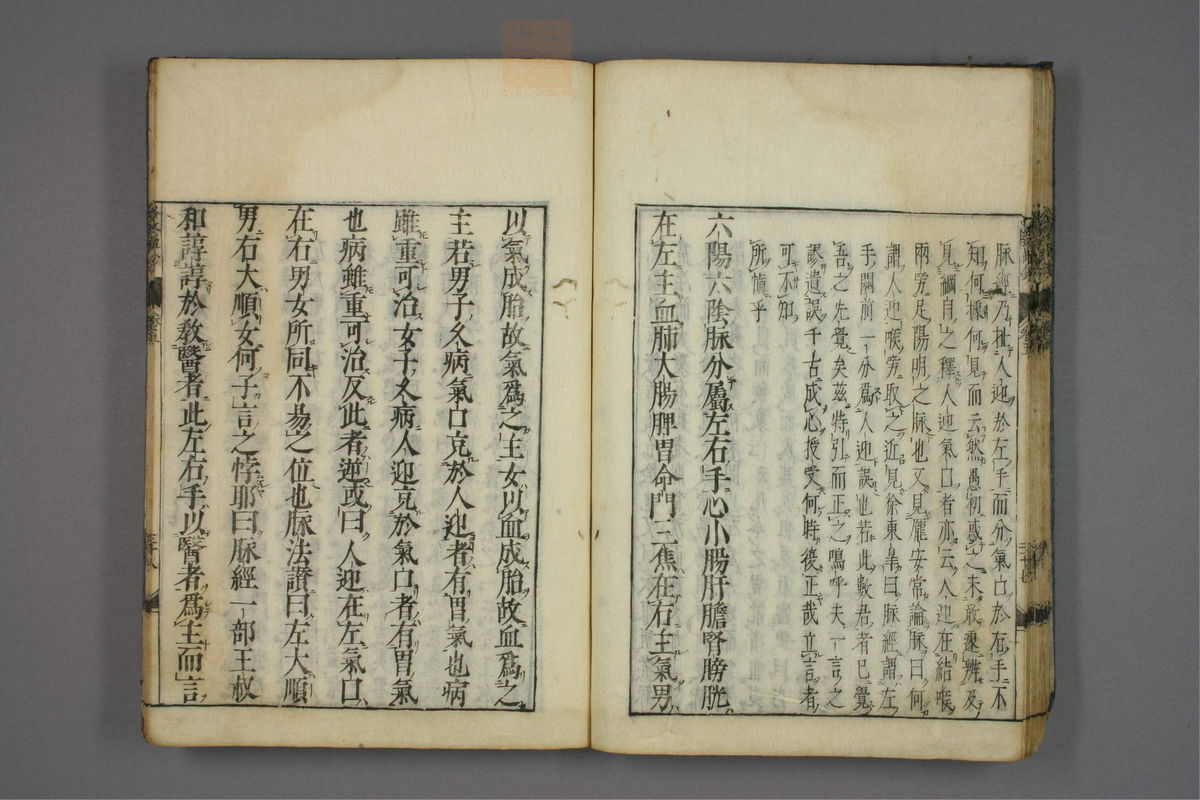 脉經乃扯人迎於左手而分氣口於右手不
知何據何見而云然愚初惑之未敢遽辨及
見綱目之釋人迎氣口者亦云人迎在結喉
兩旁足陽明之脉也又見龐安常論脉曰何
謂人迎喉旁取之近見徐東皐曰脉經謂左
手關前一分爲人迎誤也若此數君者已覺
吾之先覺矣茲特引而正之嗚呼夫一言之
誤遺誤千古成心授受何時復正哉立言者
可不知
所慎乎
六陽六陰脉分屬左右手心小腸肝膽腎膀胱
在左主血肺大腸脾胃命門三焦在右主氣男
以氣成胎故氣爲之主女以血成胎故血爲之
主若男子久病氣口克於人迎者有胃氣也病
雖重可治女子久病人迎克於氣口者有胃氣
也病雖重可治反此者逆或曰人迎在左氣口
在右男女所同不易之位也脉法讚曰左大順
男右大順女何子言之悖耶曰脉經一部王叔
和諄諄於教醫者此左右手以醫者爲主而言